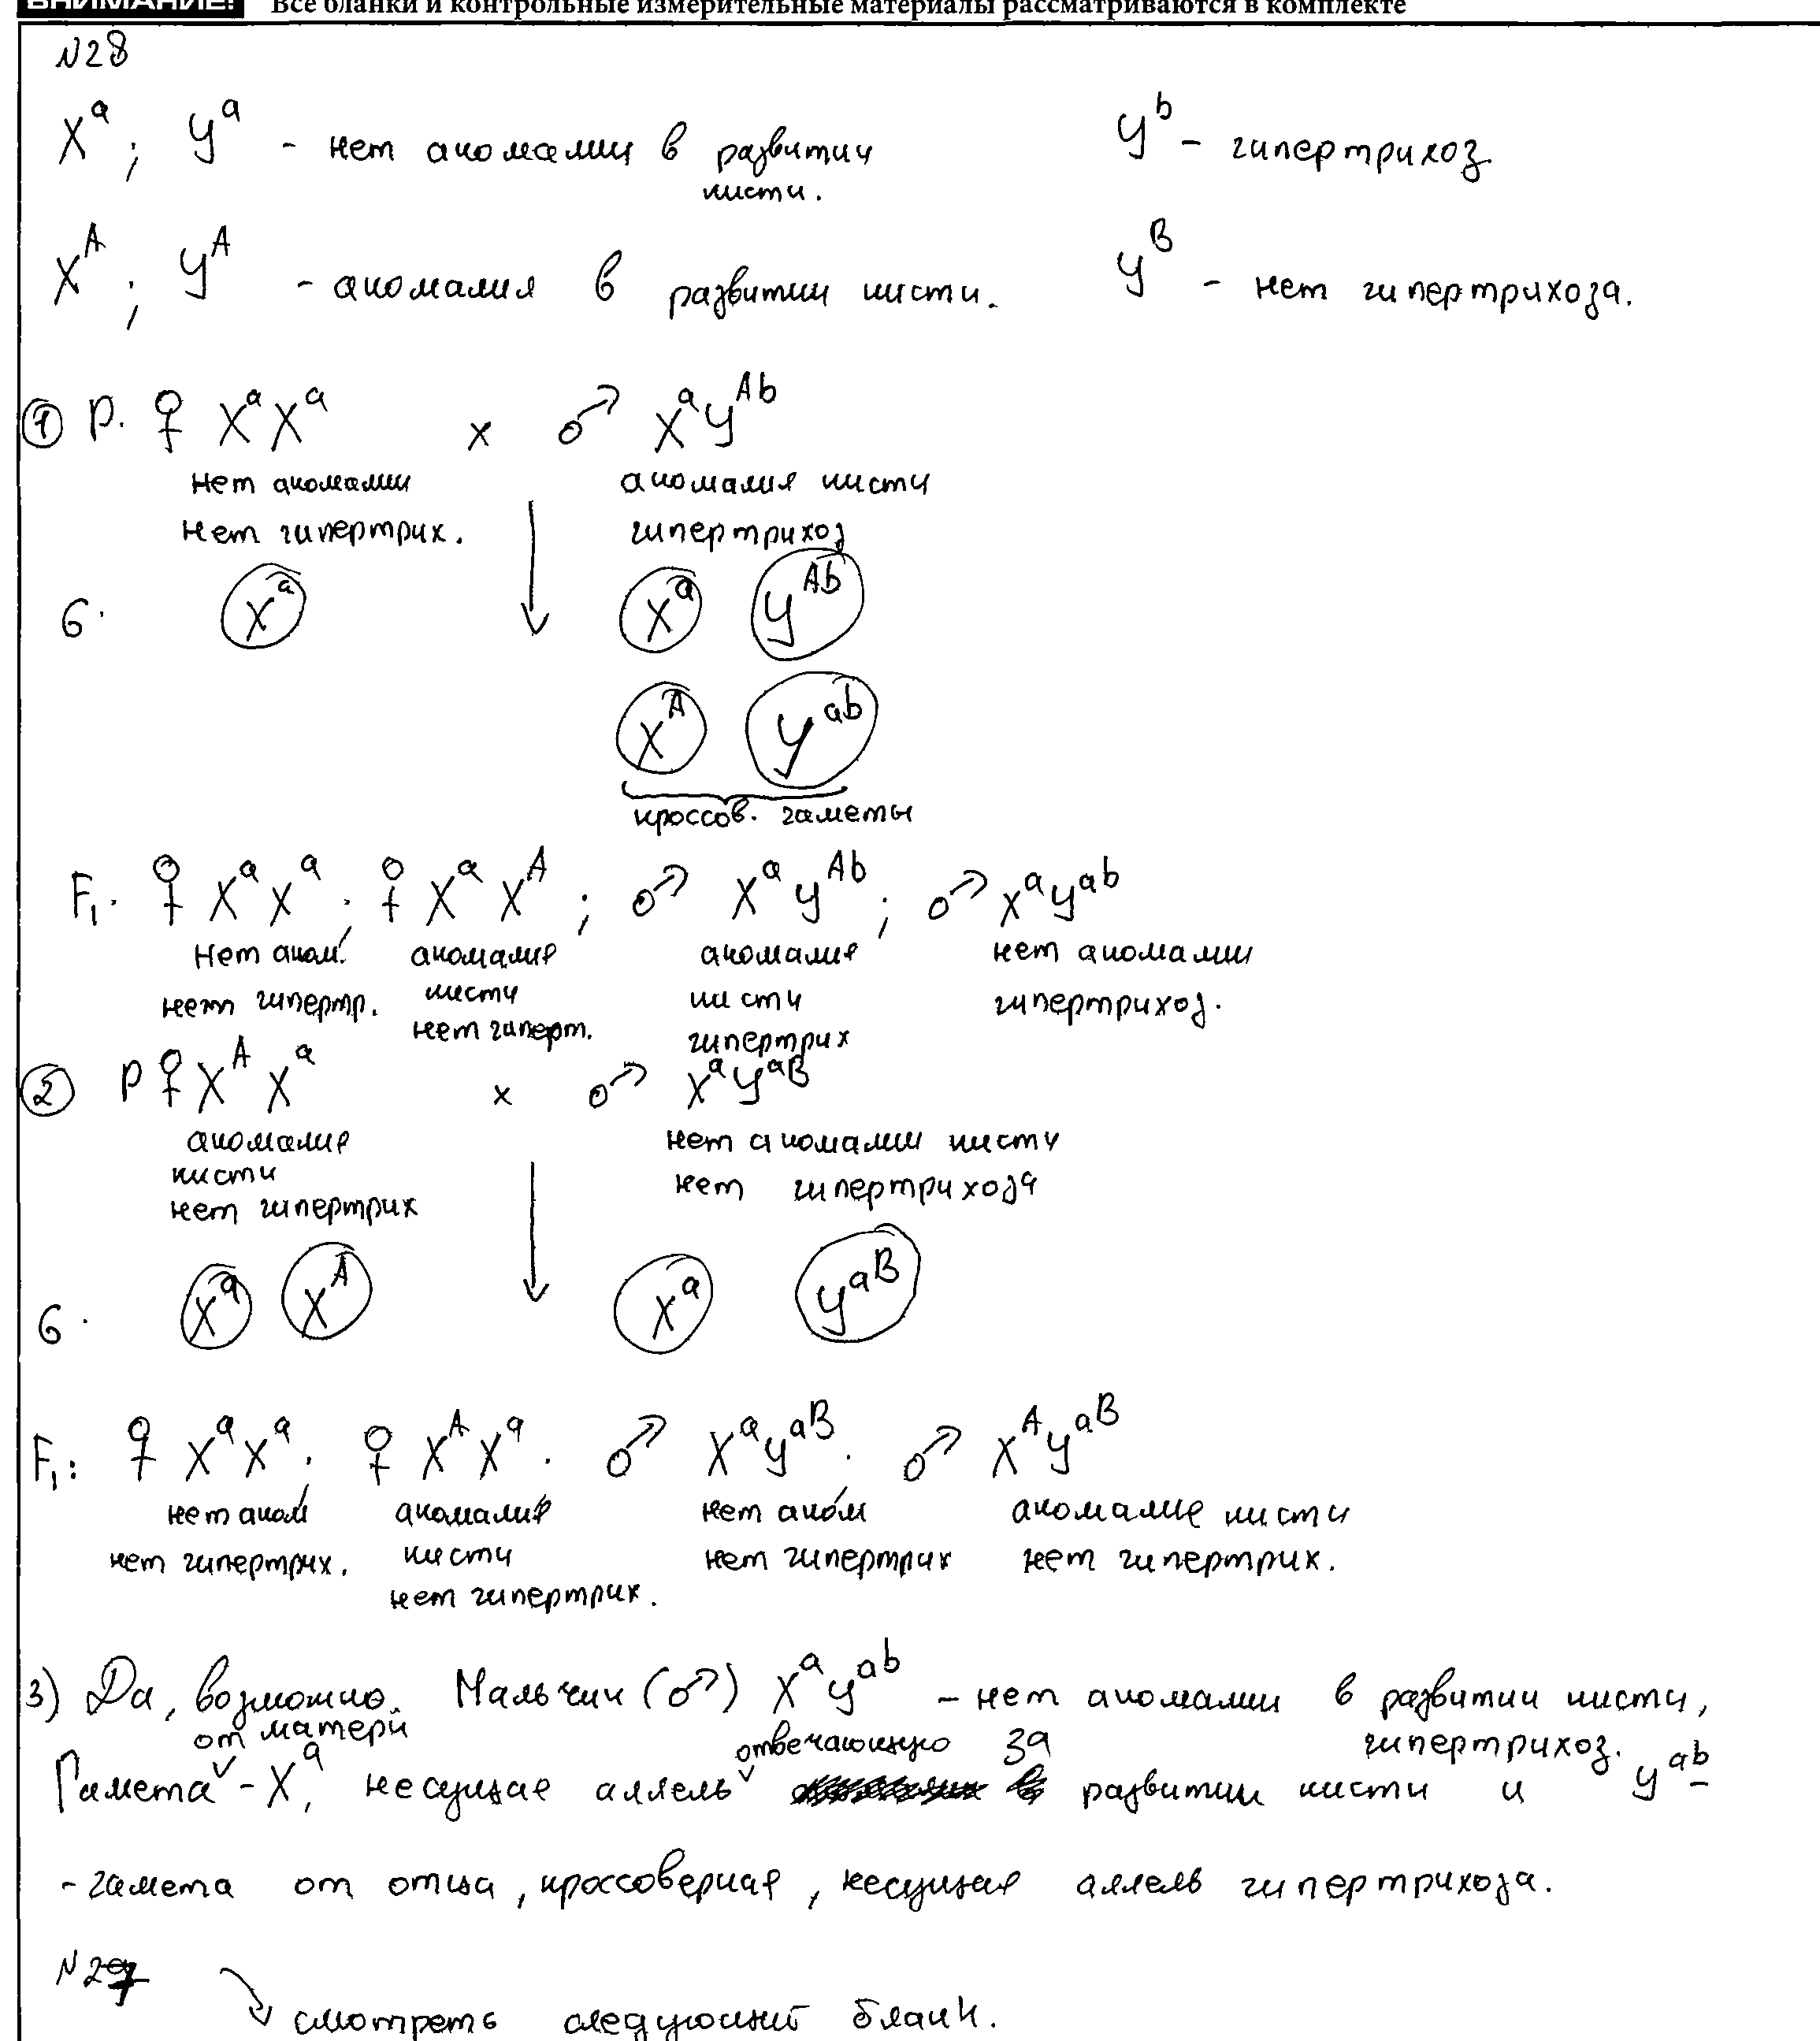 ВНИМАНИЕ! Все бланки и контрольные измерительные материалы рассматриваются в комплекте
N28
X^a ; Y^a - нет аномалии в развитии кисти. Y^b - гипертрихоз
X^A ; Y^A - аномалия в развитии кисти. Y^B - нет гипертрихоза.
① P. ♀ X^a X^a x ♂ X^a Y^Ab
нет аномалии аномалия кисти
нет гипертрих. гипертрихоз
G. X^a X^a Y^Ab
X^A Y^ab
кроссов. гаметы
F₁. ♀ X^a X^a ; ♀ X^a X^A ; ♂ X^a Y^Ab ; ♂ X^a Y^ab
нет аном. аномалия аномалия нет аномалии
нет гипертр. кисти кисти гипертрихоз.
нет гиперт. гипертрих
② P ♀ X^A X^a x ♂ X^a Y^aB
аномалия нет аномалии кисти
кисти
нет гипертрих нет гипертрихоза
G. X^a X^A X^a Y^aB
F₁: ♀ X^a X^a ; ♀ X^A X^a . ♂ X^a Y^aB . ♂ X^A Y^aB
нет аном аномалия нет аном аномалия кисти
нет гипертрих. кисти нет гипертрих нет гипертрих.
нет гипертрих.
3) Да, возможно. Мальчик (♂) X^a Y^ab - нет аномалии в развитии кисти, гипертрихоз.
Гамета от матери - X^a, несущая аллель отвечающую за развитии кисти и Y^ab -
- гамета от отца, кроссоверная, несущая аллель гипертрихоза.
N27
смотреть следующий бланк.